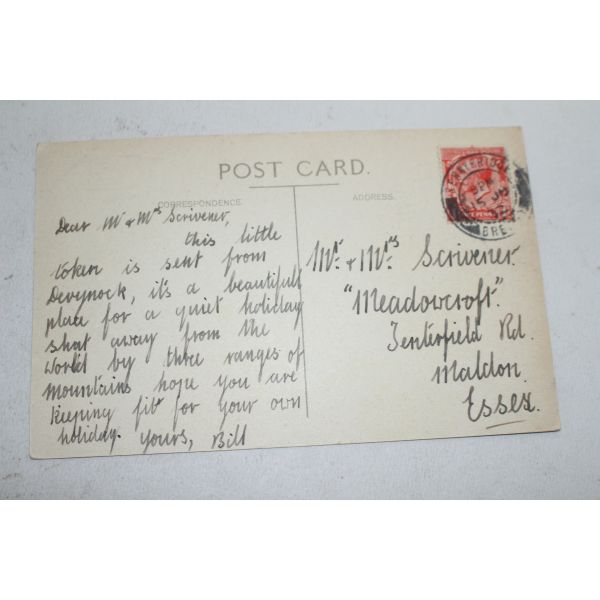 POST CARD.
CORRESPONDENCE
ADDRESS.
Dear Mr & Mrs Scrivener,
this little
token is sent from
Devynock, it's a beautifull
place for a quiet holiday
shut away from the
world by three ranges of
mountains hope you are
keeping fit for your own
holiday. Yours, Bill
Mr. & Mrs. Scrivener
"Meadowcroft".
Tenterfield Rd.
Maldon.
Essex.